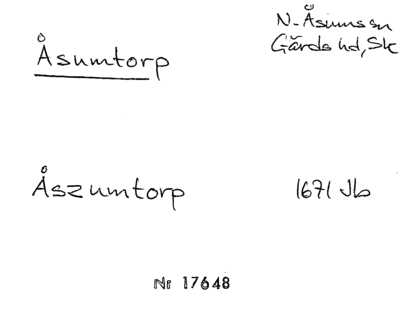 N. Åsums sn
Gärds hd, Sk
Åsumtorp
Åszumtorp 1671 Jb
Nr 17648